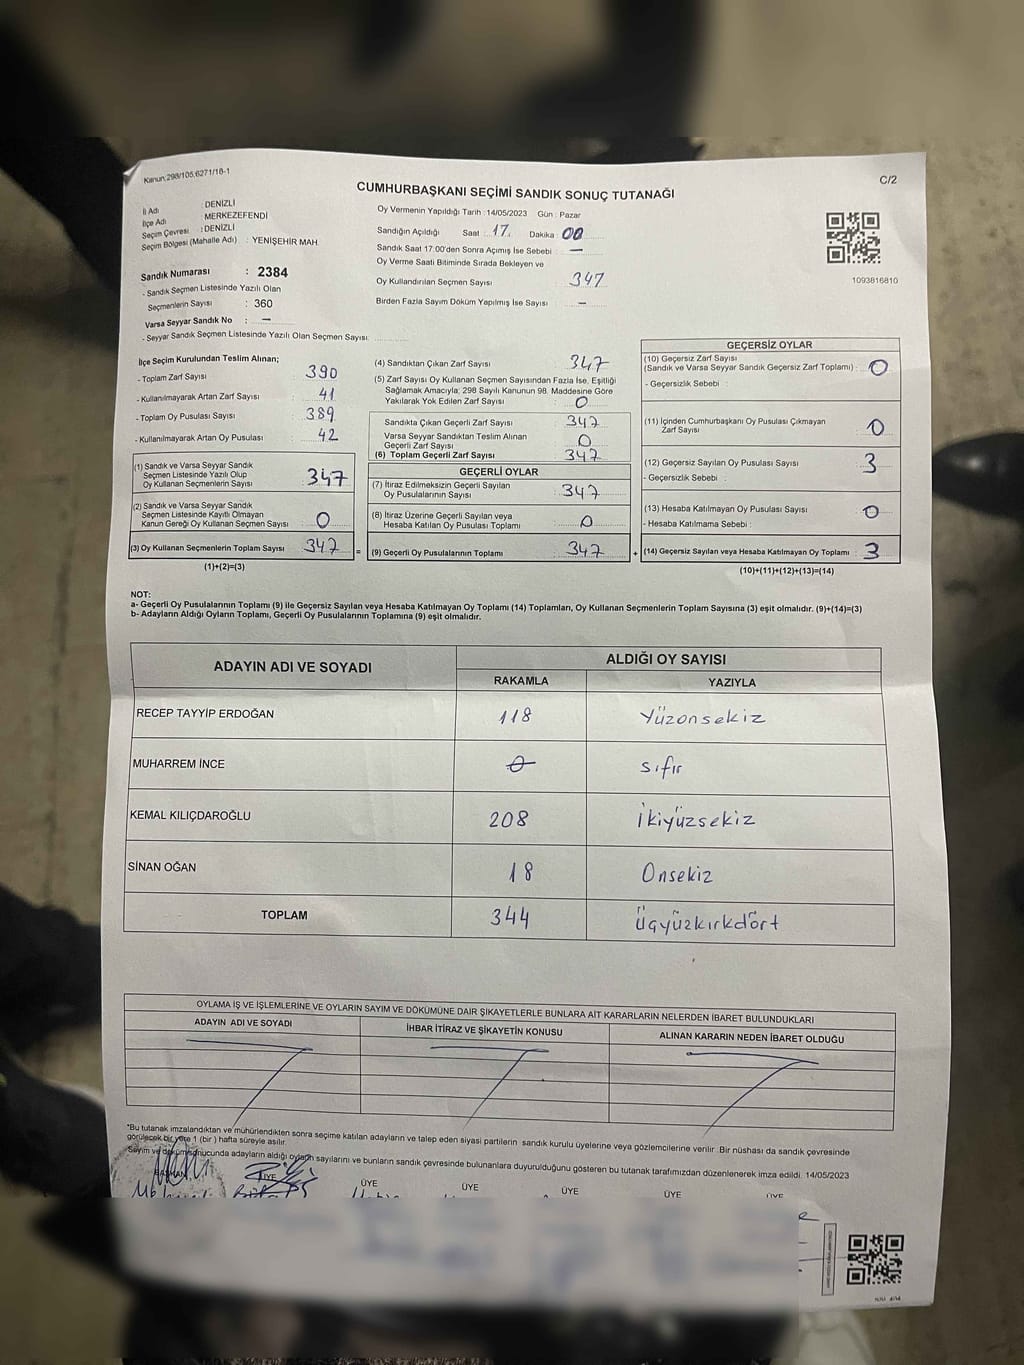 Kanun:298/105,6271/16-1
C/2
CUMHURBAŞKANI SEÇİMİ SANDIK SONUÇ TUTANAĞI
İl Adı : DENİZLİ
İlçe Adı : MERKEZEFENDİ
Seçim Çevresi : DENİZLİ
Seçim Bölgesi (Mahalle Adı) : YENİŞEHİR MAH.
Sandık Numarası : 2384
- Sandık Seçmen Listesinde Yazılı Olan
Seçmenlerin Sayısı : 360
Varsa Seyyar Sandık No : –
- Seyyar Sandık Seçmen Listesinde Yazılı Olan Seçmen Sayısı:
Oy Vermenin Yapıldığı Tarih : 14/05/2023 Gün : Pazar
Sandığın Açıldığı Saat 17. Dakika : 00
Sandık Saat 17:00'den Sonra Açımış İse Sebebi : –
Oy Verme Saati Bitiminde Sırada Bekleyen ve
Oy Kullandırılan Seçmen Sayısı : 347
Birden Fazla Sayım Döküm Yapılmış İse Sayısı : –
1093816810
İlçe Seçim Kurulundan Teslim Alınan;
- Toplam Zarf Sayısı : 390
- Kullanılmayarak Artan Zarf Sayısı : 41
- Toplam Oy Pusulası Sayısı : 389
- Kullanılmayarak Artan Oy Pusulası : 42
(1) Sandık ve Varsa Seyyar Sandık
Seçmen Listesinde Yazılı Olup
Oy Kullanan Seçmenlerin Sayısı : 347
(2) Sandık ve Varsa Seyyar Sandık
Seçmen Listesinde Kayıtlı Olmayan
Kanun Gereği Oy Kullanan Seçmen Sayısı : 0
(3) Oy Kullanan Seçmenlerin Toplam Sayısı : 347
(1)+(2)=(3)
(4) Sandıktan Çıkan Zarf Sayısı : 347
(5) Zarf Sayısı Oy Kullanan Seçmen Sayısından Fazla İse, Eşitliği
Sağlamak Amacıyla; 298 Sayılı Kanunun 98. Maddesine Göre
Yakılarak Yok Edilen Zarf Sayısı : 0
Sandıkta Çıkan Geçerli Zarf Sayısı : 347
Varsa Seyyar Sandıktan Teslim Alınan
Geçerli Zarf Sayısı : 0
(6) Toplam Geçerli Zarf Sayısı : 347
GEÇERLİ OYLAR
(7) İtiraz Edilmeksizin Geçerli Sayılan
Oy Pusulalarının Sayısı : 347
(8) İtiraz Üzerine Geçerli Sayılan veya
Hesaba Katılan Oy Pusulası Toplamı : 0
= (9) Geçerli Oy Pusulalarının Toplamı : 347 +
GEÇERSİZ OYLAR
(10) Geçersiz Zarf Sayısı
(Sandık ve Varsa Seyyar Sandık Geçersiz Zarf Toplamı) : 0
- Geçersizlik Sebebi :
(11) İçinden Cumhurbaşkanı Oy Pusulası Çıkmayan
Zarf Sayısı : 0
(12) Geçersiz Sayılan Oy Pusulası Sayısı : 3
- Geçersizlik Sebebi :
(13) Hesaba Katılmayan Oy Pusulası Sayısı : 0
- Hesaba Katılmama Sebebi :
(14) Geçersiz Sayılan veya Hesaba Katılmayan Oy Toplamı : 3
(10)+(11)+(12)+(13)=(14)
NOT:
a- Geçerli Oy Pusulalarının Toplamı (9) ile Geçersiz Sayılan veya Hesaba Katılmayan Oy Toplamı (14) Toplamları, Oy Kullanan Seçmenlerin Toplam Sayısına (3) eşit olmalıdır. (9)+(14)=(3)
b- Adayların Aldığı Oyların Toplamı, Geçerli Oy Pusulalarının Toplamına (9) eşit olmalıdır.
ADAYIN ADI VE SOYADI
ALDIĞI OY SAYISI
RAKAMLA YAZIYLA
RECEP TAYYİP ERDOĞAN 118 Yüzonsekiz
MUHARREM İNCE 0 sıfır
KEMAL KILIÇDAROĞLU 208 İkiyüzsekiz
SİNAN OĞAN 18 Onsekiz
TOPLAM 344 üçyüzkırkdört
OYLAMA İŞ VE İŞLEMLERİNE VE OYLARIN SAYIM VE DÖKÜMÜNE DAİR ŞİKAYETLERLE BUNLARA AİT KARARLARIN NELERDEN İBARET BULUNDUKLARI
ADAYIN ADI VE SOYADI İHBAR İTİRAZ VE ŞİKAYETİN KONUSU ALINAN KARARIN NEDEN İBARET OLDUĞU
*Bu tutanak imzalandıktan ve mühürlendikten sonra seçime katılan adayların ve talep eden siyasi partilerin sandık kurulu üyelerine veya gözlemcilerine verilir .Bir nüshası da sandık çevresinde
görülecek bir yere 1 (bir ) hafta süreyle asılır.
Sayım ve döküm sonucunda adayların aldığı oyların sayılarını ve bunların sandık çevresinde bulunanlara duyurulduğunu gösteren bu tutanak tarafımızdan düzenlenerek imza edildi. 14/05/2023
BAŞKAN ÜYE ÜYE ÜYE ÜYE ÜYE ÜYE